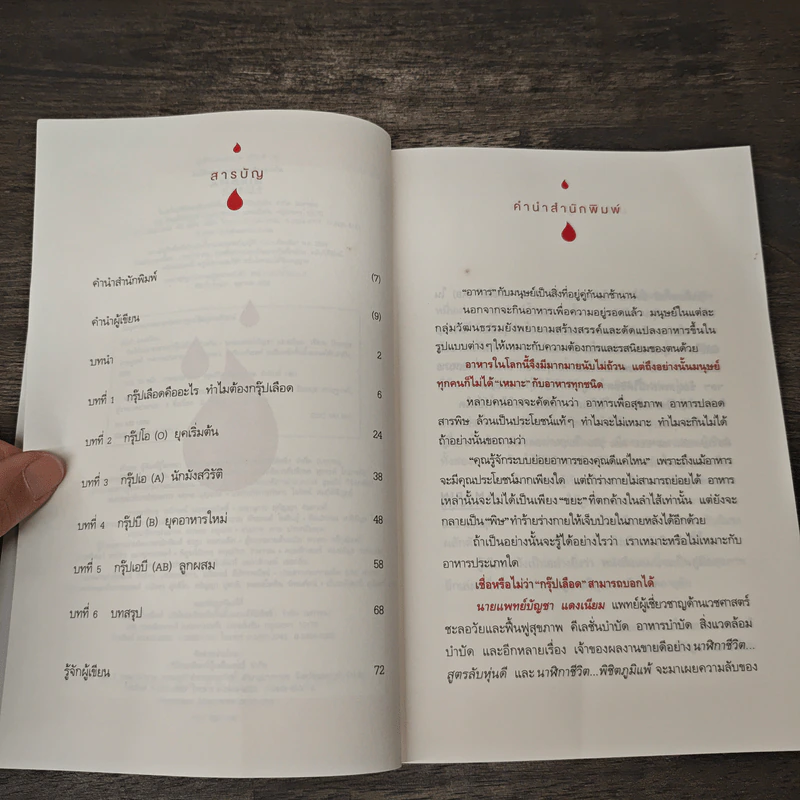 สารบัญ
คำนำสำนักพิมพ์ (7)
คำนำผู้เขียน (9)
บทนำ 2
บทที่ 1 กรุ๊ปเลือดคืออะไร ทำไมต้องกรุ๊ปเลือด 6
บทที่ 2 กรุ๊ปโอ (O) ยุคเริ่มต้น 24
บทที่ 3 กรุ๊ปเอ (A) นักมังสวิรัติ 38
บทที่ 4 กรุ๊ปบี (B) ยุคอาหารใหม่ 48
บทที่ 5 กรุ๊ปเอบี (AB) ลูกผสม 58
บทที่ 6 บทสรุป 68
รู้จักผู้เขียน 72
คำนำสำนักพิมพ์
“อาหาร” กับมนุษย์เป็นสิ่งที่อยู่คู่กันมาช้านาน
นอกจากจะกินอาหารเพื่อความอยู่รอดแล้ว มนุษย์ในแต่ละ
กลุ่มวัฒนธรรมยังพยายามสร้างสรรค์และดัดแปลงอาหารขึ้นใน
รูปแบบต่างๆ ให้เหมาะกับความต้องการและรสนิยมของตนด้วย
อาหารในโลกนี้จึงมีมากมายนับไม่ถ้วน แต่ถึงอย่างนั้นมนุษย์
ทุกคนก็ไม่ได้ “เหมาะ” กับอาหารทุกชนิด
หลายคนอาจจะคัดค้านว่า อาหารเพื่อสุขภาพ อาหารปลอด
สารพิษ ล้วนเป็นประโยชน์แท้ๆ ทำไมจะไม่เหมาะ ทำไมจะกินไม่ได้
ถ้าอย่างนั้นขอถามว่า
“คุณรู้จักระบบย่อยอาหารของคุณดีแค่ไหน” เพราะถึงแม้อาหาร
จะมีคุณประโยชน์มากเพียงใด แต่ถ้าร่างกายไม่สามารถย่อยได้ อาหาร
เหล่านั้นจะไม่ได้เป็นเพียง “ขยะ” ที่ตกค้างในลำไส้เท่านั้น แต่ยังจะ
กลายเป็น “พิษ” ทำร้ายร่างกายให้เจ็บป่วยในภายหลังได้อีกด้วย
ถ้าเป็นอย่างนั้นจะรู้ได้อย่างไรว่า เราเหมาะหรือไม่เหมาะกับ
อาหารประเภทใด
เชื่อหรือไม่ว่า “กรุ๊ปเลือด” สามารถบอกได้
นายแพทย์บัญชา แดงเนียม แพทย์ผู้เชี่ยวชาญด้านเวชศาสตร์
ชะลอวัยและฟื้นฟูสุขภาพ คีเลชั่นบำบัด อาหารบำบัด สิ่งแวดล้อม
บำบัด และอีกหลายเรื่อง เจ้าของผลงานขายดีอย่าง นาฬิกาชีวิต...
สูตรลับหุ่นดี และ นาฬิกาชีวิต...พิชิตภูมิแพ้ จะมาเผยความลับของ